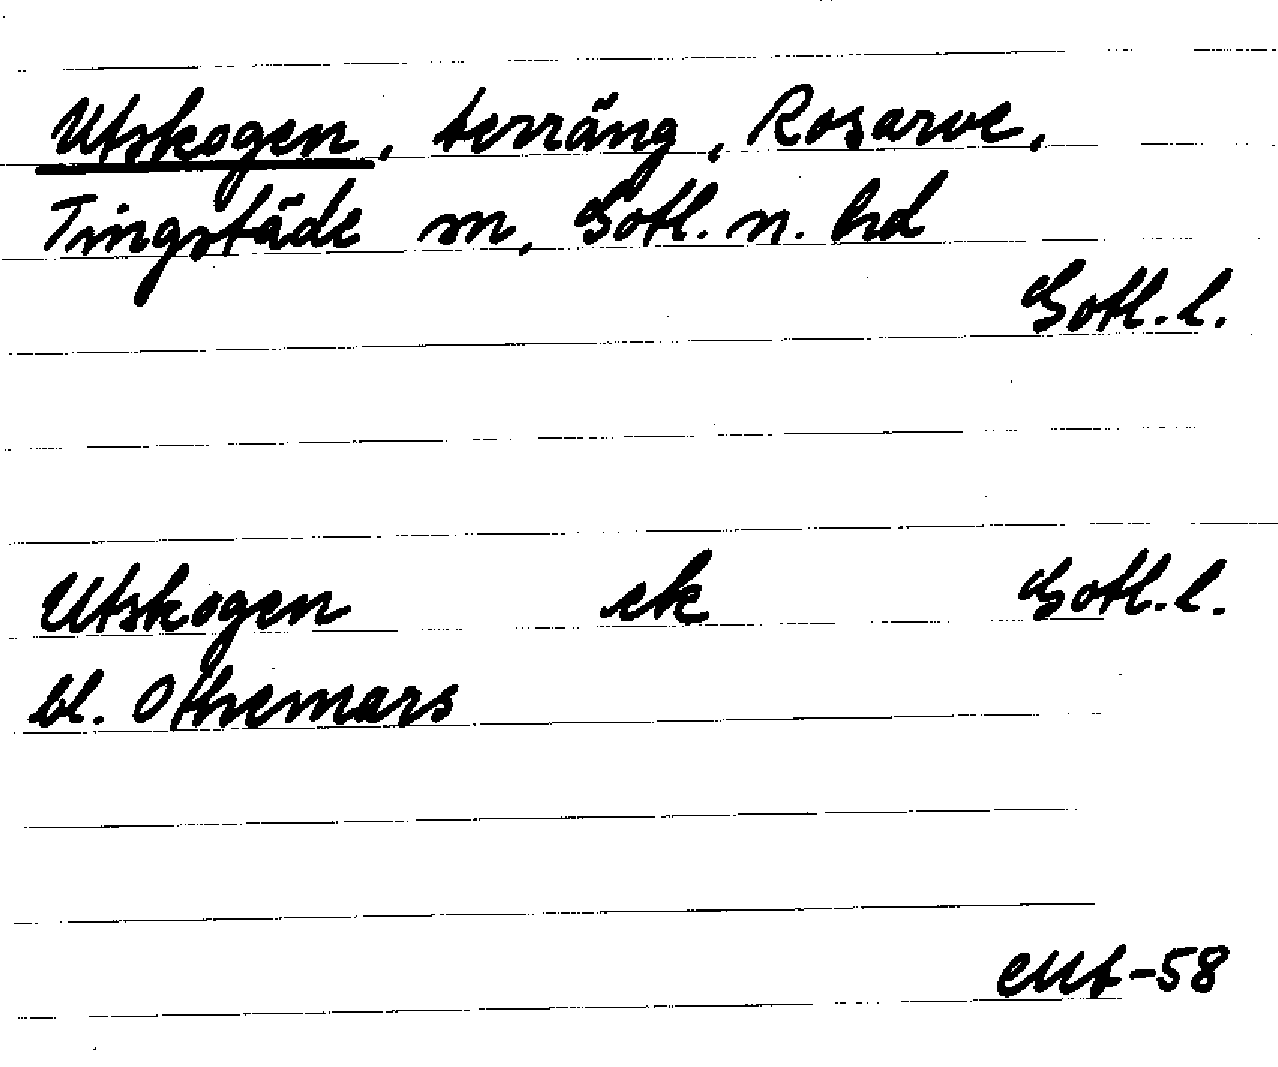 Utskogen, terräng, Rosarve,
Tingstäde sn, Gotl. n. hd
Gotl. l.
Utskogen ek Gotl. l.
bl. Othemars